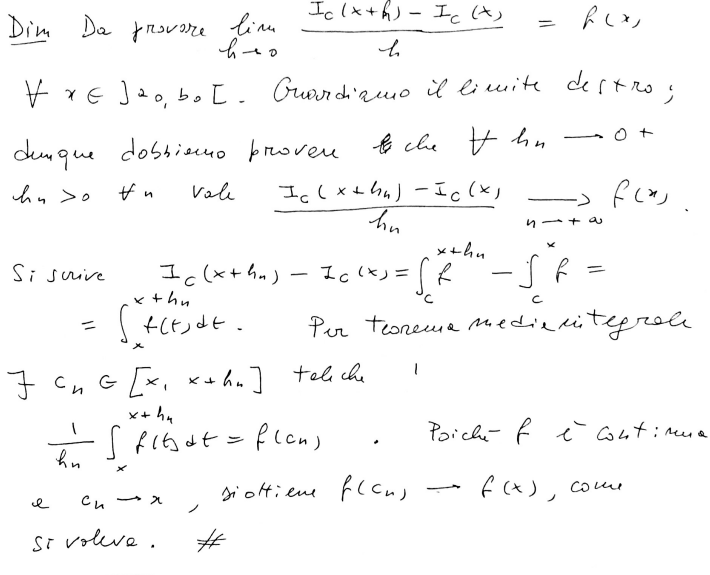 Dim Da provare lim_{h→0} (I_c(x+h) − I_c(x))/h = f(x)
∀ x ∈ ]a₀, b₀[. Guardiamo il limite destro;
dunque dobbiamo provere che ∀ h_n → 0+
h_n > 0 ∀ n vale (I_c(x+h_n) − I_c(x))/h_n →_{n→+∞} f(x).
Si scrive I_c(x+h_n) − I_c(x) = ∫_c^{x+h_n} f − ∫_c^x f =
= ∫_x^{x+h_n} f(t) dt. Per teorema media integrale
∃ c_n ∈ [x, x+h_n] tali che
1/h_n ∫_x^{x+h_n} f(t) dt = f(c_n). Poiché f è continua
e c_n → x, si ottiene f(c_n) → f(x), come
si voleva. #